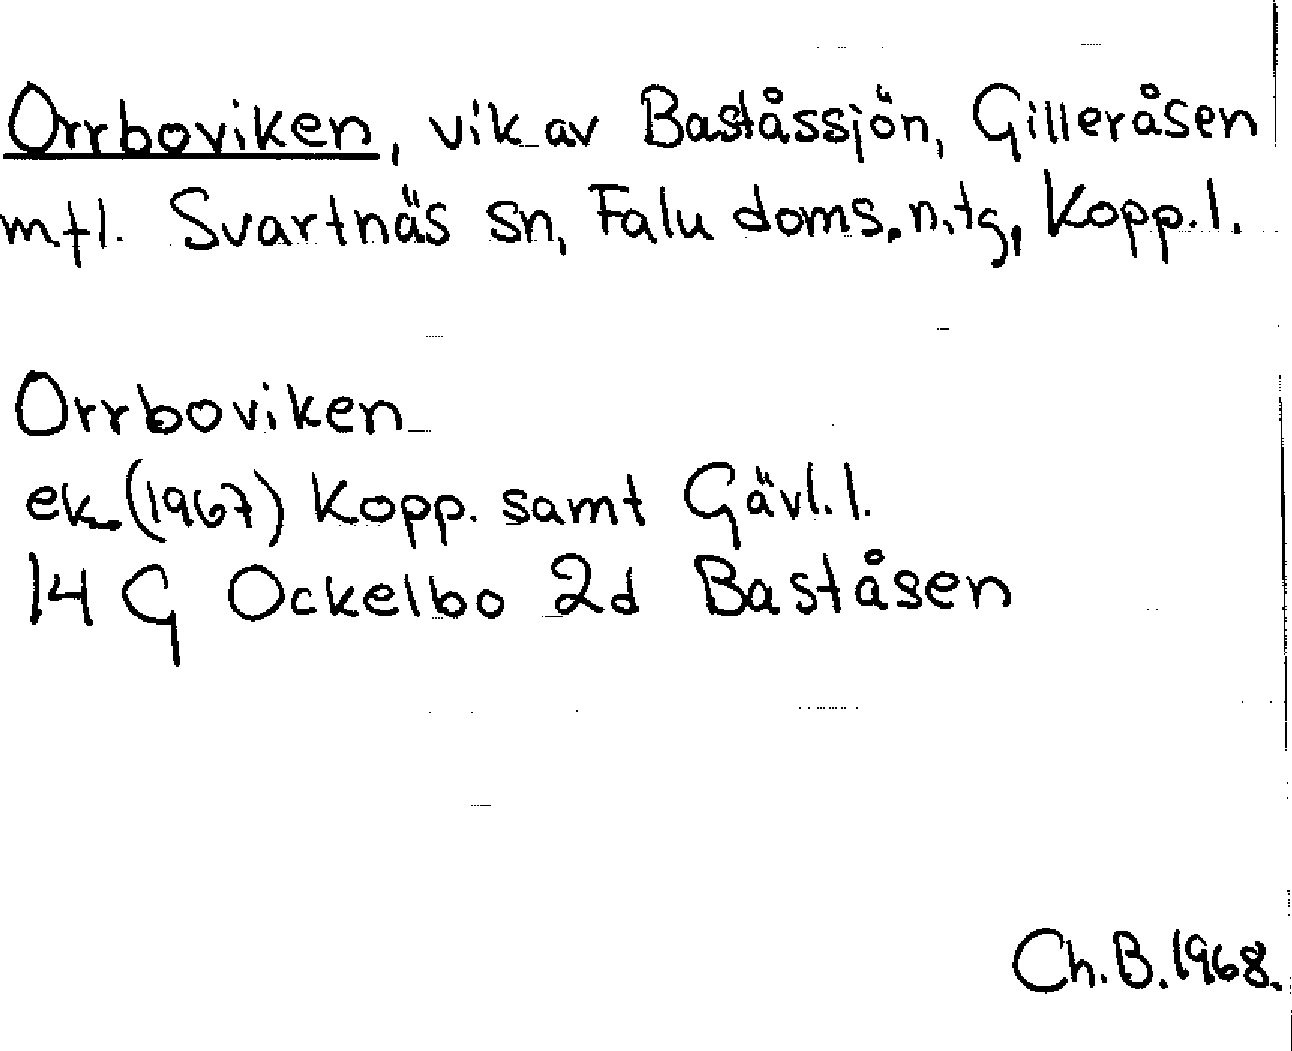 Orrboviken, vik av Baståssjön, Gilleråsen
mtl. Svartnäs sn, Falu doms. n. tg, Kopp. l.
Orrboviken
ek. (1967) Kopp. samt Gävl. l.
14 G Ockelbo 2d Baståsen
Ch. B. 1968.